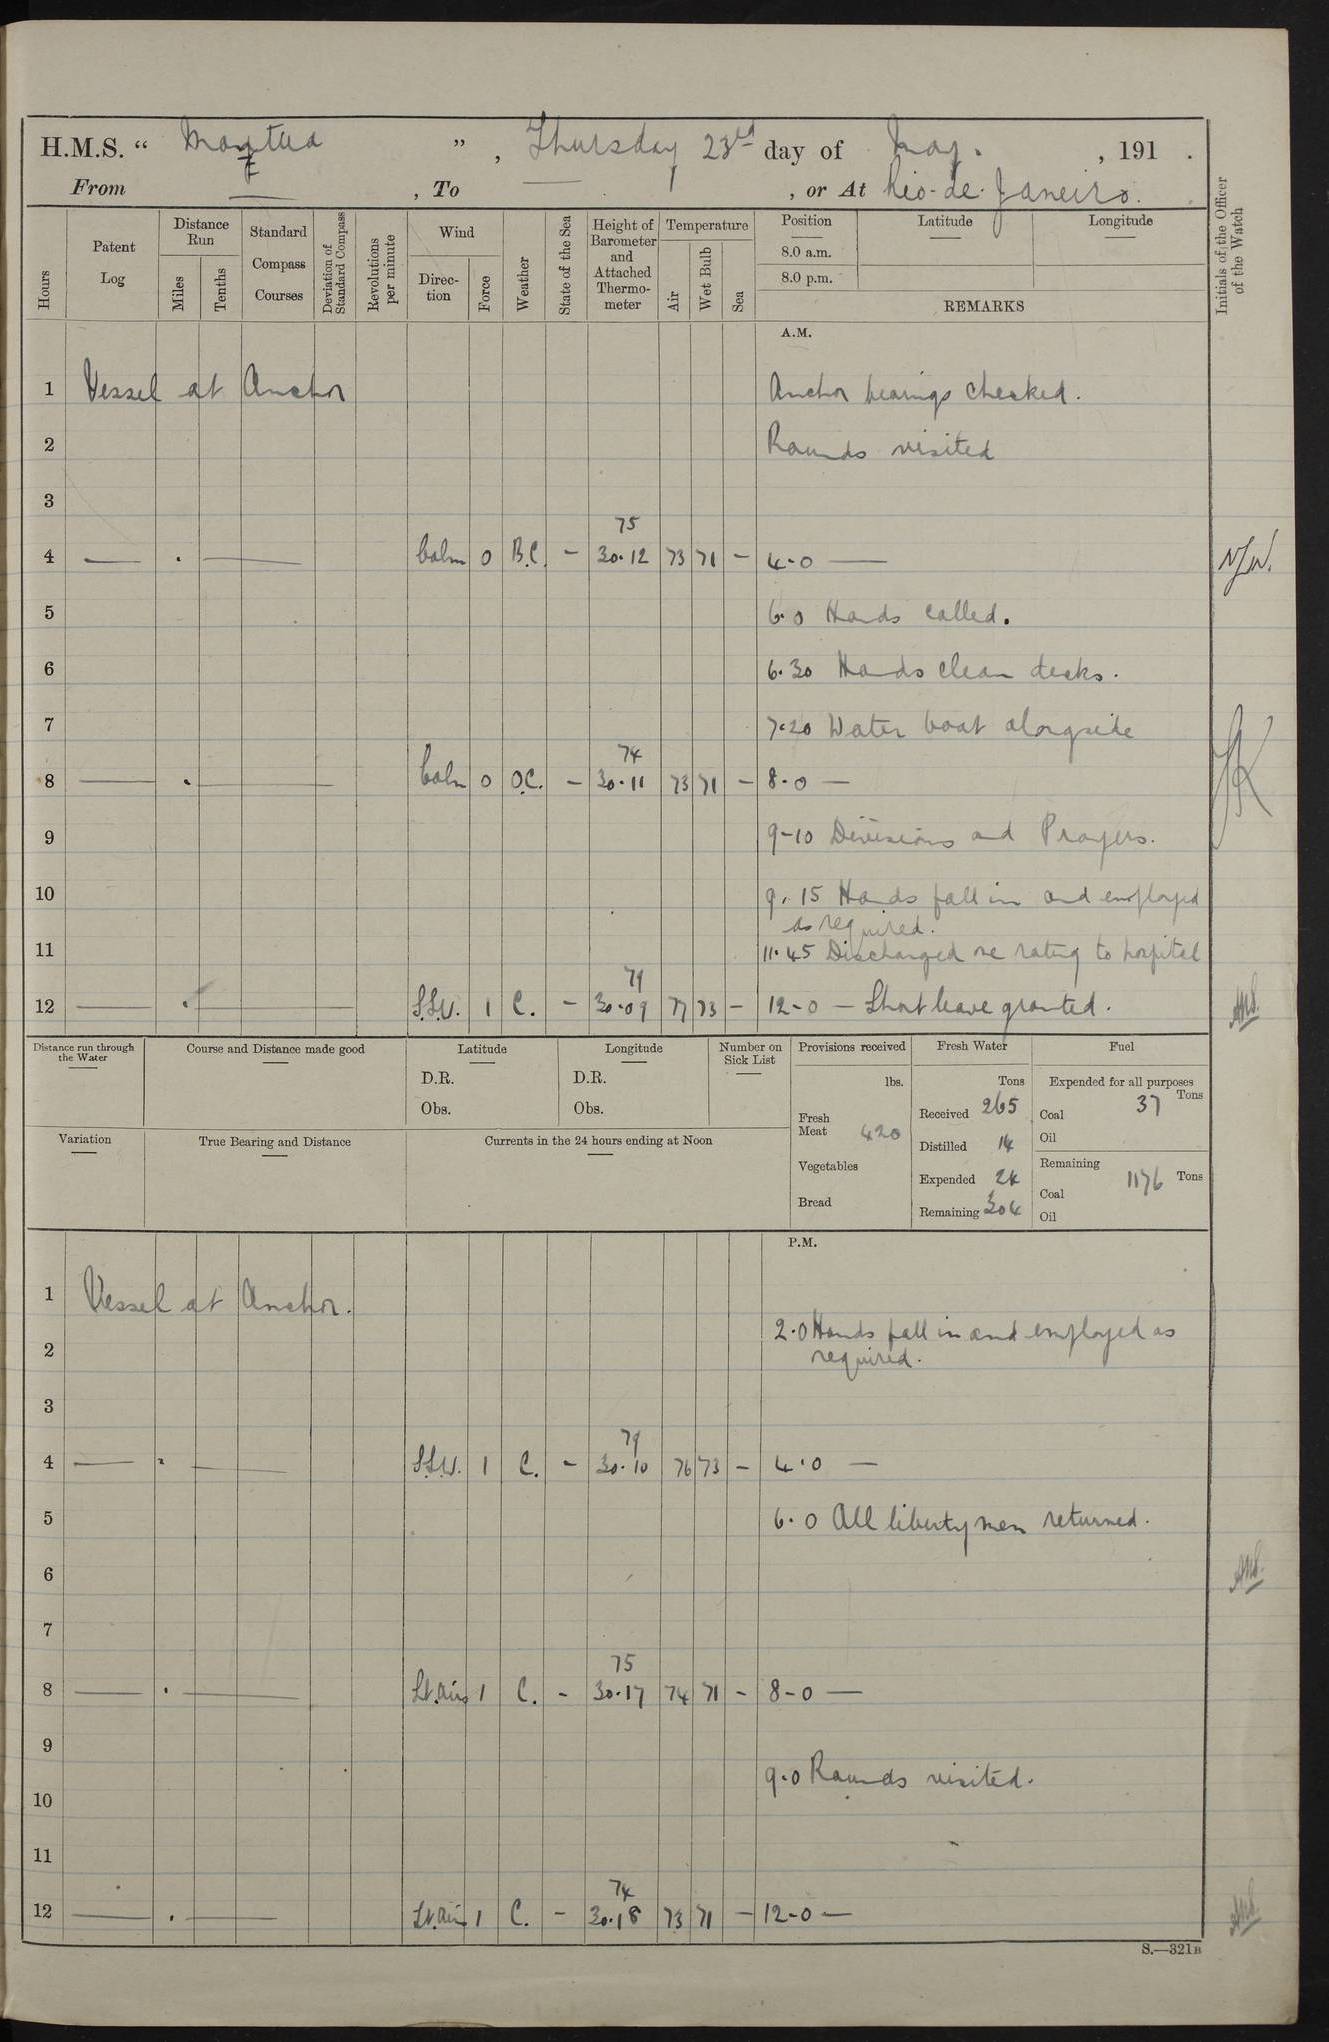 H.M.S. “ Mantua ” , Thursday 23rd day of May. , 191 .
From — , To — , or At Rio-de-Janeiro.
Hours
Patent Log
Distance Run
Miles
Tenths
Standard Compass Courses
Deviation of Standard Compass
Revolutions per minute
Wind
Direction
Force
Weather
State of the Sea
Height of Barometer and Attached Thermometer
Temperature
Air
Wet Bulb
Sea
Position
8.0 a.m.
8.0 p.m.
Latitude
Longitude
REMARKS
Initials of the Officer of the Watch
A.M.
1 Vessel at Anchor Anchor bearings checked.
2 Rounds visited
3
75
4 — . — Calm 0 B.C. - 30.12 73 71 - 4.0 —
5 6.0 Hands called.
6 6.30 Hands clean decks.
7 7.20 Water boat alongside
74
8 — . — Calm 0 O.C. - 30.11 73 71 - 8.0 —
9 9-10 Divisions and Prayers.
10 9.15 Hands fall in and employed
as required.
11 11.45 Discharged one rating to hospital
79
12 — . — S.S.W. 1 C. - 30.09 77 73 - 12-0 — Short leave granted.
Distance run through the Water
Course and Distance made good
Latitude
D.R.
Obs.
Longitude
D.R.
Obs.
Number on Sick List
Variation
True Bearing and Distance
Currents in the 24 hours ending at Noon
Provisions received
lbs.
Fresh Meat 420
Vegetables
Bread
Fresh Water
Tons
Received 265
Distilled 14
Expended 24
Remaining 304
Fuel
Expended for all purposes
Tons
Coal 37
Oil
Remaining
Coal 1176 Tons
Oil
P.M.
1 Vessel at Anchor.
2 2.0 Hands fall in and employed as
required.
3
79
4 — . — S.S.W. 1 C. - 30.10 76 73 - 4.0 —
5 6.0 All liberty men returned.
6
7
75
8 — . — Lt. airs 1 C. - 30.17 74 71 - 8-0 —
9
9.0 Rounds visited.
10
11
74
12 — . — Lt. air 1 C. - 30.18 73 71 - 12-0 —
S.—321B